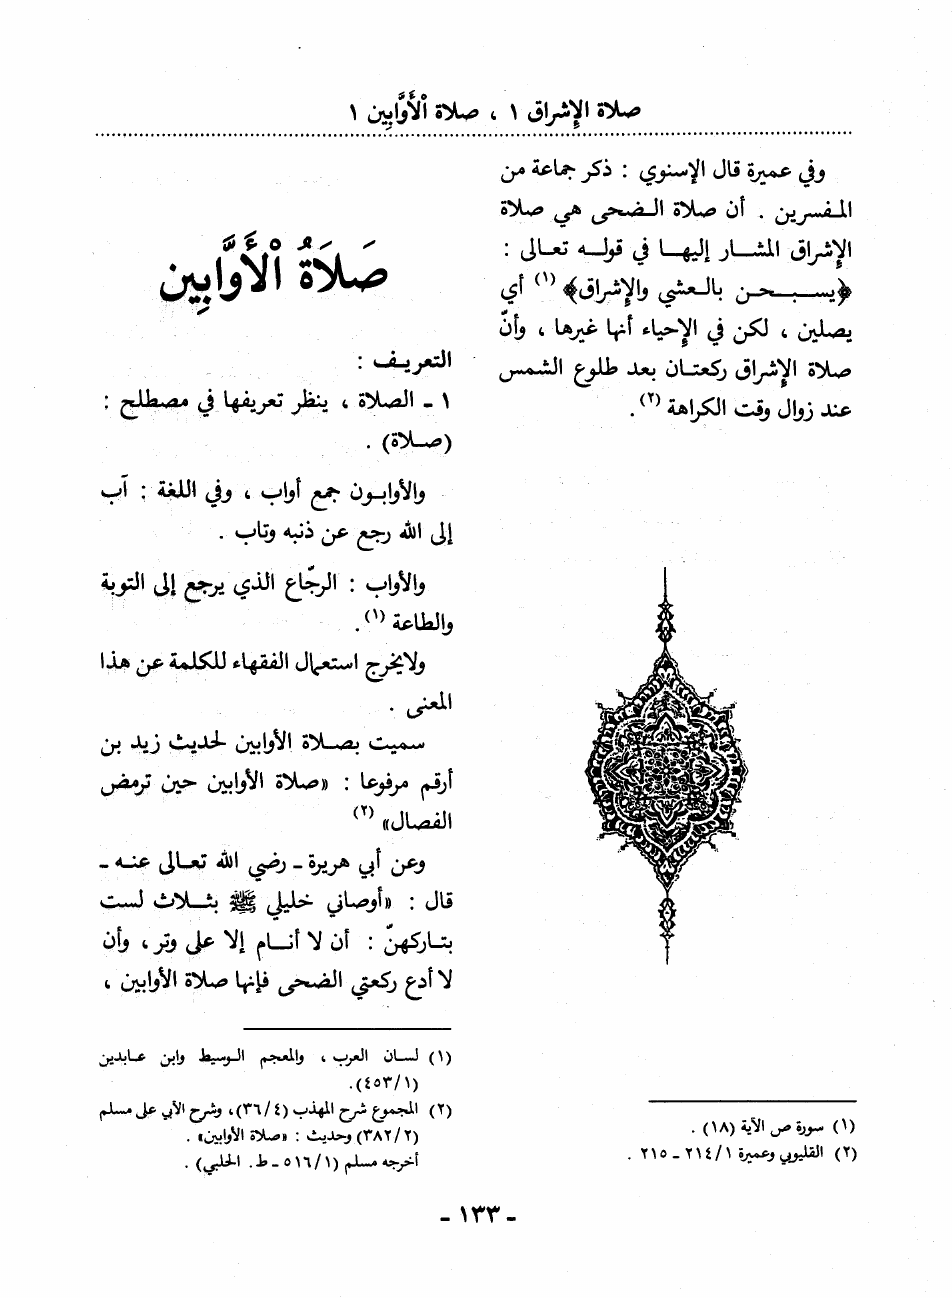 صلاة الإشراق ١ ، صلاة الْأَوَّابِين ١
وفي عميرة قال الإسنوي : ذكر جماعة من
المفسرين . أن صلاة الضحى هي صلاة
الإشراق المشار إليها في قوله تعالى :
﴿يسبحن بالعشي والإشراق﴾ (١) أي
يصلين ، لكن في الإحياء أنها غيرها ، وأنّ
صلاة الإشراق ركعتان بعد طلوع الشمس
عند زوال وقت الكراهة (٢).
(١) سورة ص الآية (١٨) .
(٢) القليوبي وعميرة ١/ ٢١٤ ـ ٢١٥ .
صَلَاةُ الْأَوَّابِين
التعريف :
١ ـ الصلاة ، ينظر تعريفها في مصطلح :
(صلاة) .
والأوابون جمع أواب ، وفي اللغة : آب
إلى الله رجع عن ذنبه وتاب .
والأواب : الرجّاع الذي يرجع إلى التوبة
والطاعة (١).
ولايخرج استعمال الفقهاء للكلمة عن هذا
المعنى .
سميت بصلاة الأوابين لحديث زيد بن
أرقم مرفوعا : «صلاة الأوابين حين ترمض
الفصال» (٢)
وعن أبي هريرة ـ رضي الله تعالى عنه ـ
قال : «أوصاني خليلي ﷺ بثلاث لست
بتاركهنّ : أن لا أنام إلا على وتر، وأن
لا أدع ركعتي الضحى فإنها صلاة الأوابين ،
(١) لسان العرب ، والمعجم الوسيط وابن عابدين
(٤٥٣/١).
(٢) المجموع شرح المهذب (٤/ ٣٦)، وشرح الأبي على مسلم
(٢/ ٣٨٢) وحديث : «صلاة الأوابين» .
أخرجه مسلم (١/ ٥١٦ ـ ط. الحلبي) .
ـ ١٣٣ ـ